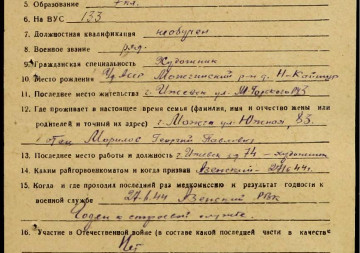 5. Образование 7 кл.
6. На ВУС 133
7. Должностная квалификация необучен
8. Военное звание ряд.
9. Гражданская специальность Художник
10. Место рождения Уд АССР Можгинский р-н д. Н-
11. Последнее место жительства г Ижевск ул. М-Горького 
12. Где проживает в настоящее время семья (фамилия, имя и отчество жены или
родителей и точный их адрес) г-Можга ул-Южная, 83.
Георгий Павлович
13. Последнее место работы и должность г Ижевск 74 - художник
14. Каким райгорвоенкоматом и когда призван Азенский - 44 г.
15. Когда и где проходил последний раз медкомиссию и результат годности к
военной службе 27.6.44 Азенский РВК
Годен к строевой службе.
16. Участие в Отечественной войне (в составе какой последней части в качеств
Нет